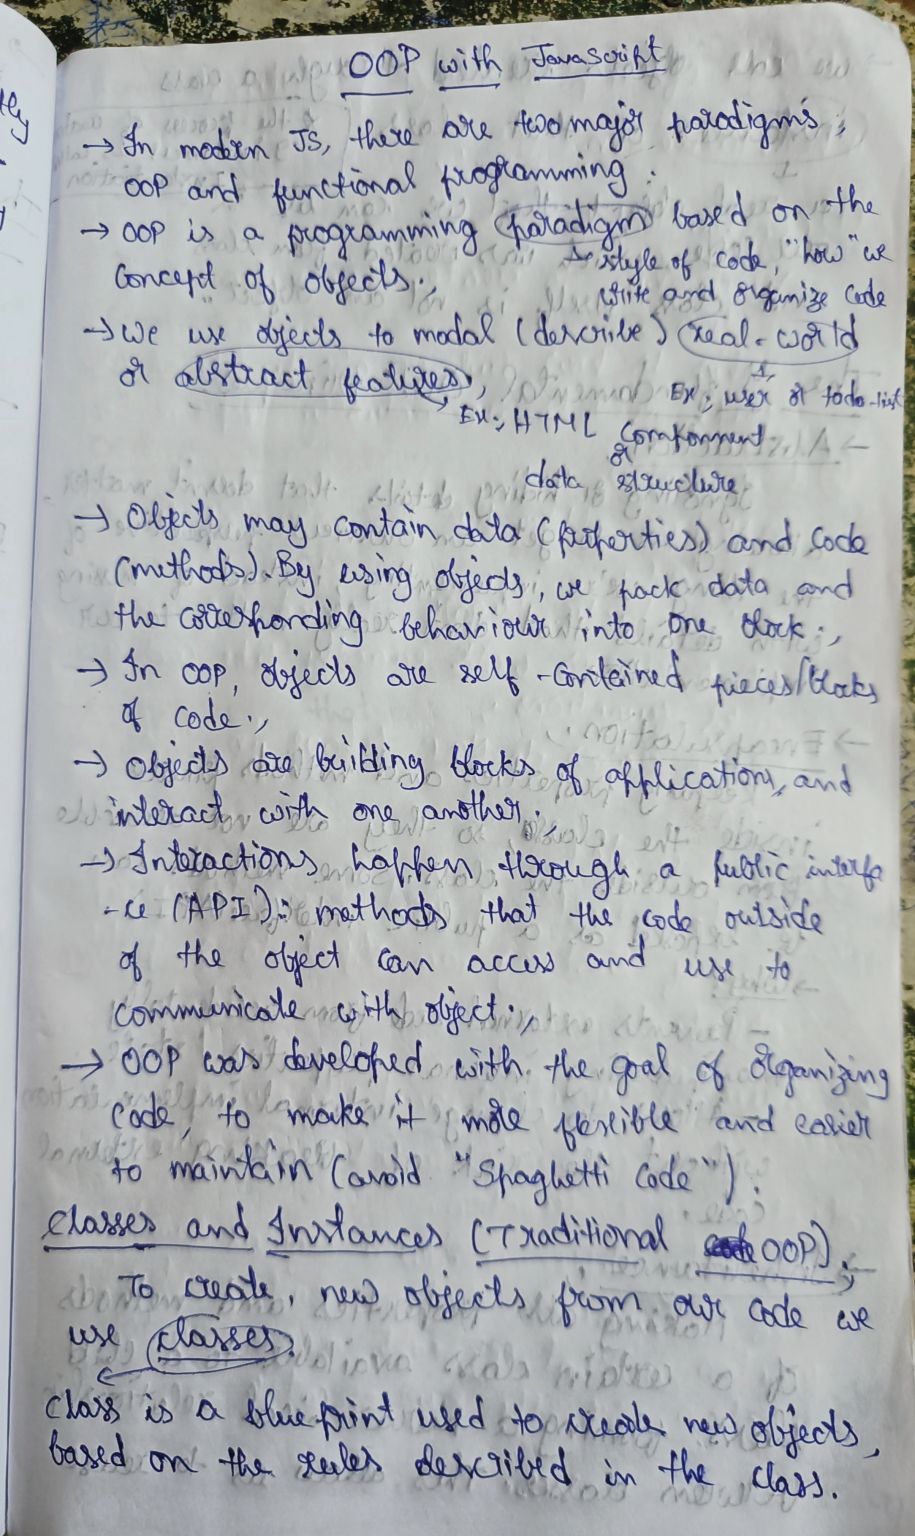 OOP with JavaScript
→ In modern JS, there are two major paradigms,
OOP and functional programming.
→ OOP is a programming paradigm based on the
concept of objects.,
→ style of code, "how" we
write and organize code
→ We use objects to modal (describe) real-world
or abstract features,
Ex:, user or todo-list
Ex:, HTML component
or
data structure
→ Objects may contain data (properties) and code
(methods). By using objects, we pack data and
the corresponding behaviour into one block.,
→ In OOP, objects are self-contained pieces/blocks
of code.,
→ Objects are building blocks of application, and
interact with one another.,
→ Interactions happen through a public interfa
-ce (API): methods that the code outside
of the object can access and use to
communicate with object.,
→ OOP was developed with the goal of organizing
code, to make it more flexible and easier
to maintain (avoid "Spaghetti code").
Classes and Instances (Traditional OOP),
To create, new objects from our code we
use classes.
class is a blue print used to create new objects,
based on the rules described in the class.